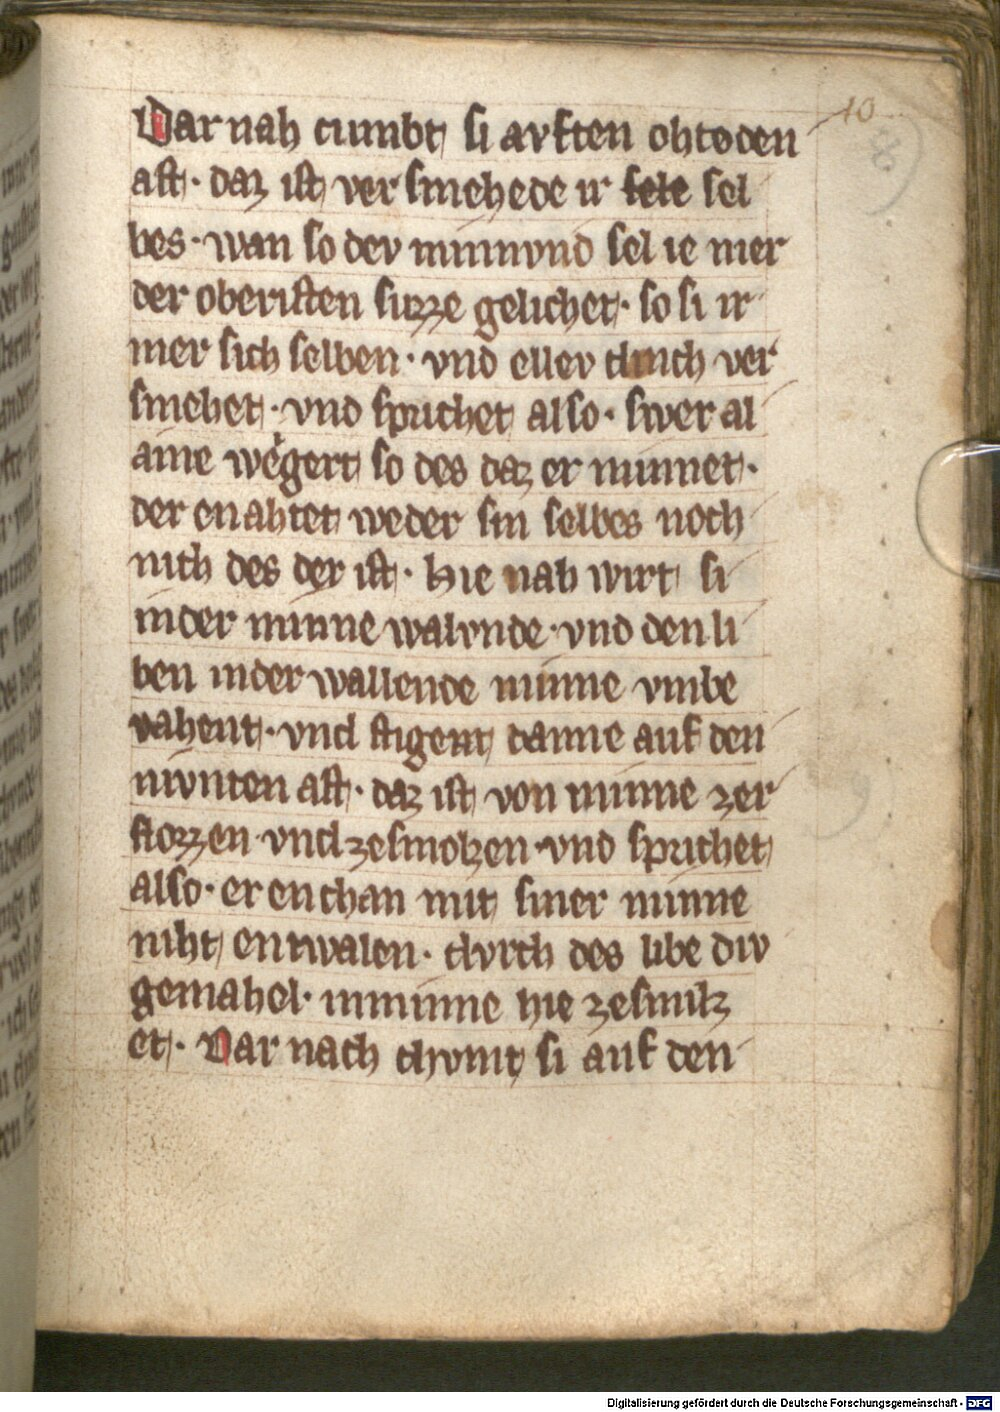 10
Dar nah cumbt si avf ten ohtoden
ast · daz ist ver smehede ir sele sel
bes · wan so dev minnvnd sel ie mer
der oberisten suzze gelichet · so si ir
mer sich selben · vnd ellev dinch ver
smehet · vnd sprichet also · swer al
aine wegert so des daz er minnet ·
der en ahtet weder sin selbes noch
nith des der ist · Hie nah wirt si
in der minne walvnde · vnd den li
ben in der wallende minne vmbe
vahent · vnd stigent danne auf den
nivnten ast · daz ist von minne zer
stozzen vnd zesmolzen · vnd sprichet
also · er en chan mit siner minne
niht entwalen · dvrch des libe div
gemahel · in minne hie zesmilz
et · Dar nach chvmt si auf den
Digitalisierung gefördert durch die Deutsche Forschungsgemeinschaft - DFG